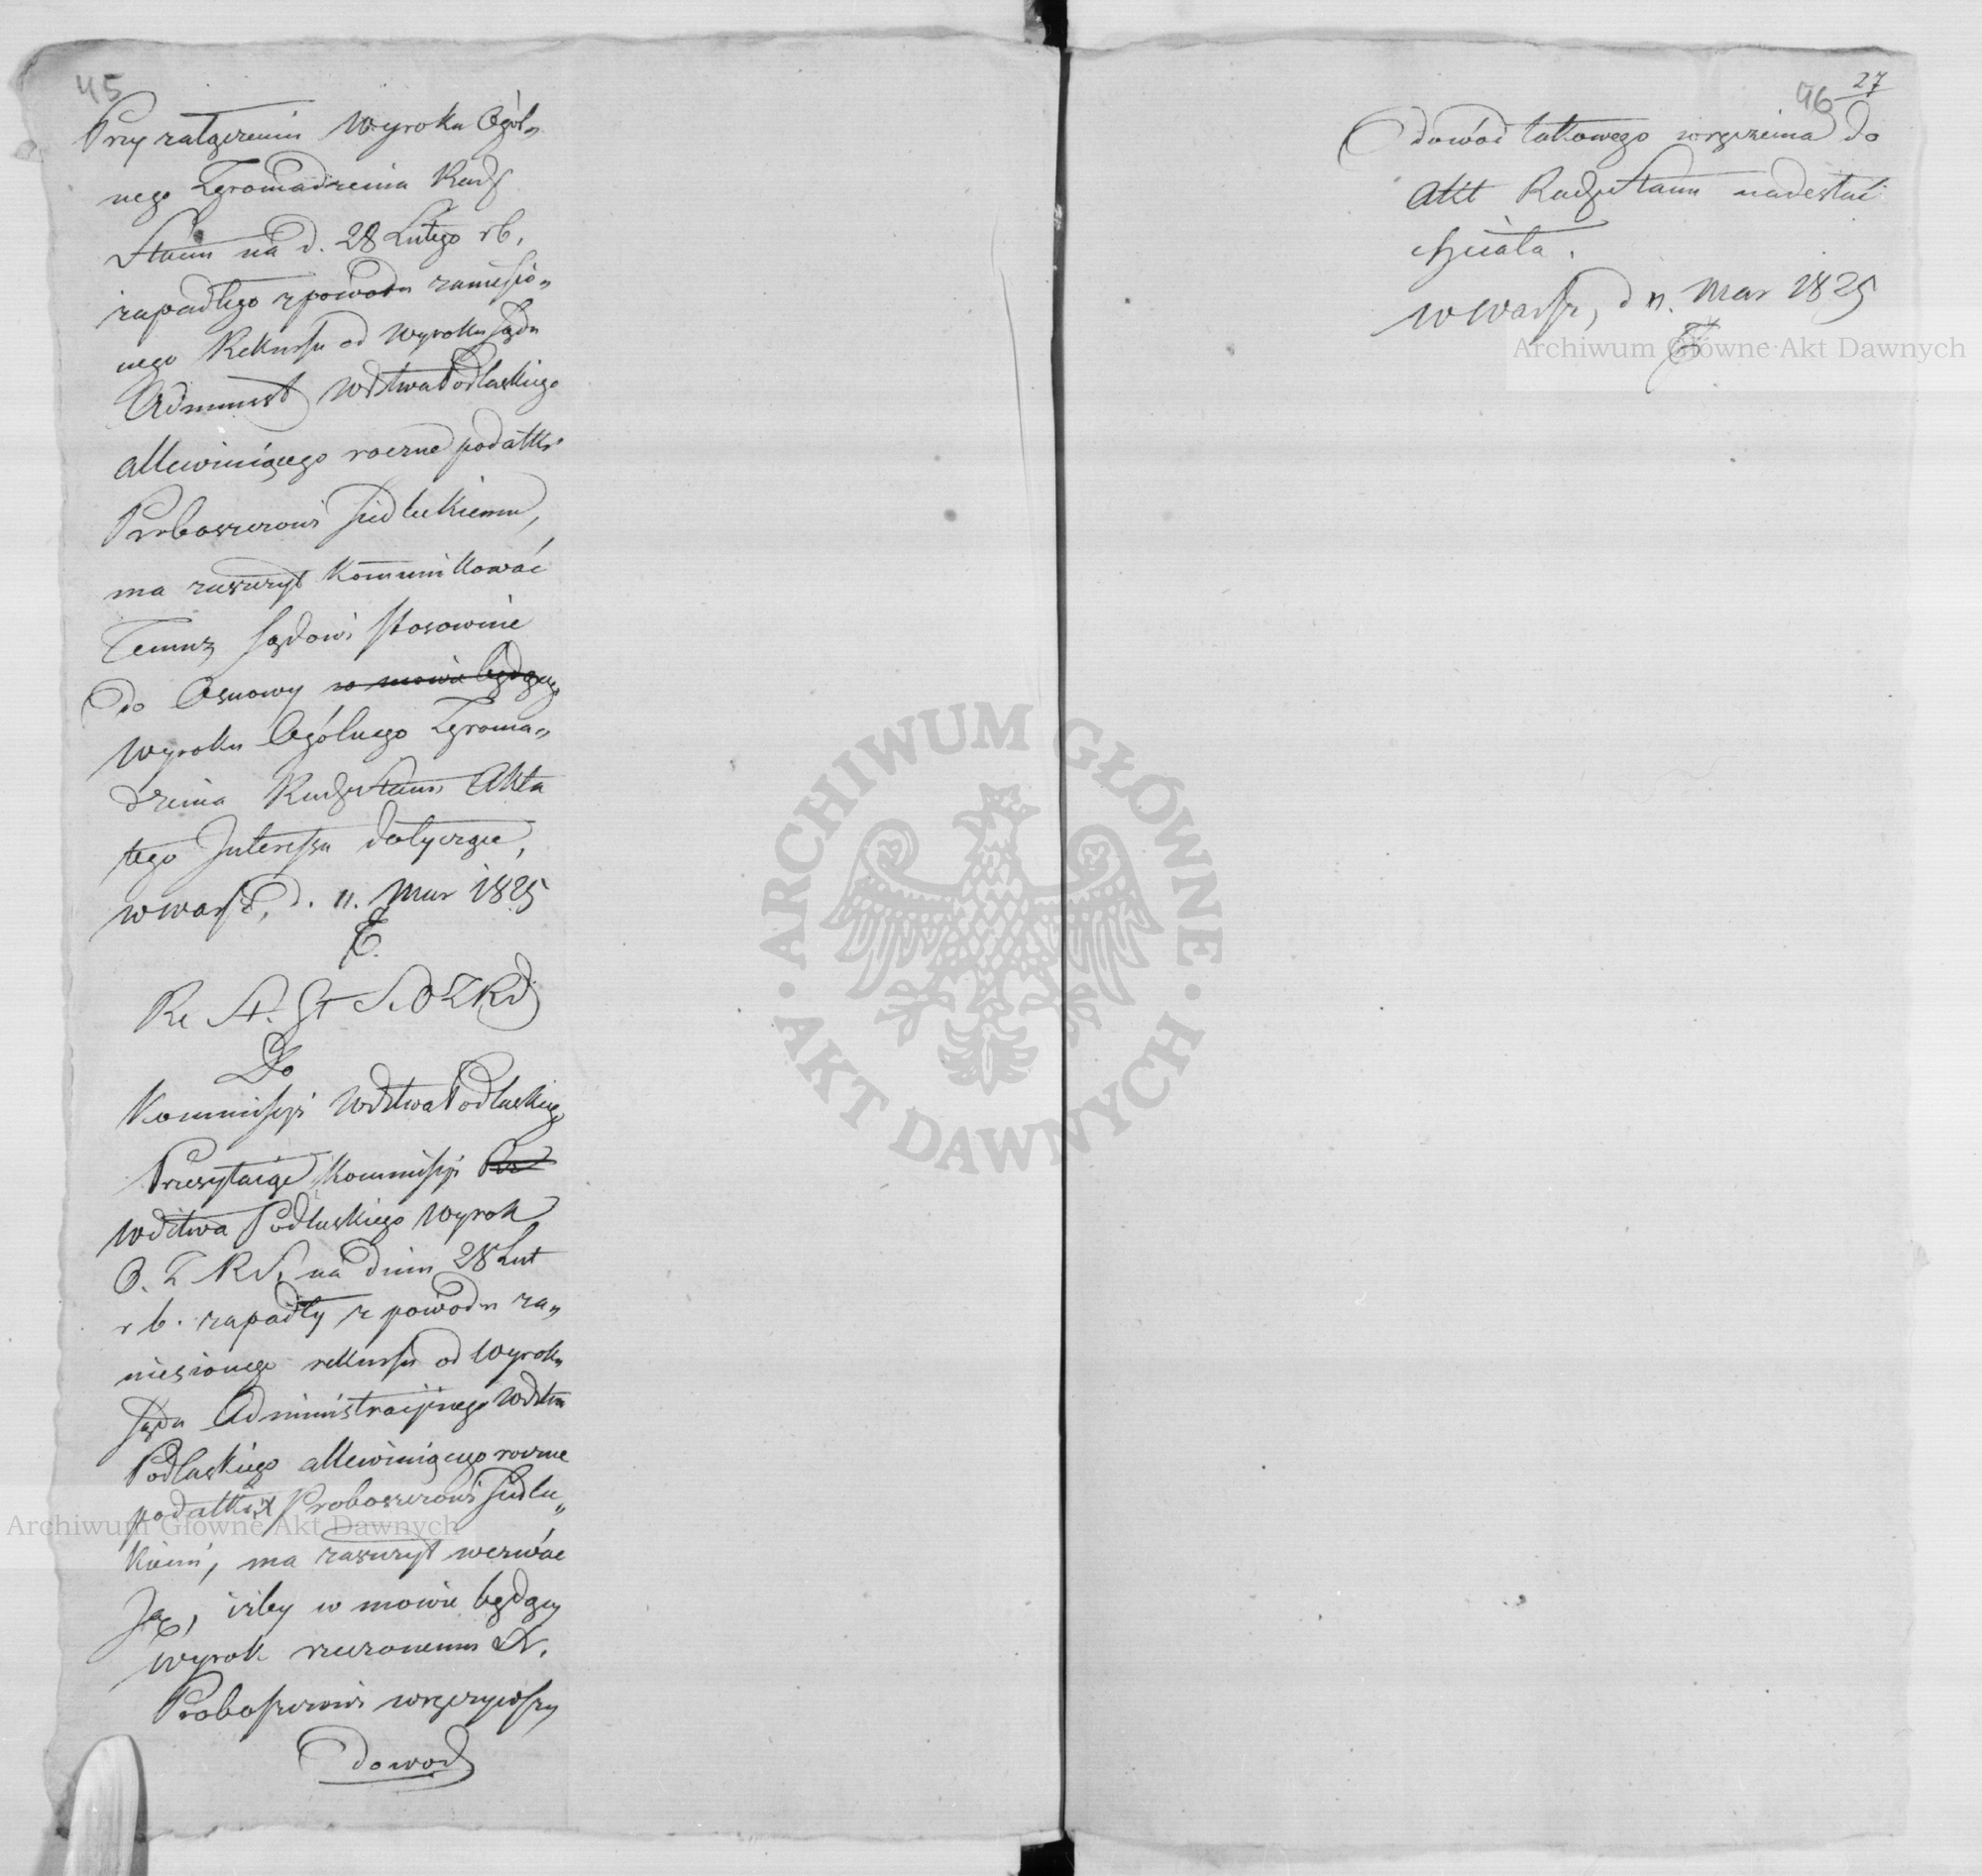 45
Przy załączeniu Wyroku Ogól„
nego Zgromadzenia Rady
Stanu na d. 28 Lutego rb.
zapadłego z powodu zaniesio„
nego Rekursu od Wyroku Sądu
Administ Wdztwa Podlaskiego
allewiniącego roczne podatki
Proboszczowi Siedleckiemu,
ma zaszczyt kommunikować
Temuz Sądowi stosownie
do Osnowy w mowie będącego
Wyroku Ogólnego Zgroma„
dzenia Rady Stanu Akta
tego Interessu dotyczące,
w Warsz, d. 11. Mar 1825
Re St. St S. O Z Rd
Do
Kommissyi Wdztwa Podlaskiego
Przesyłaiąc Kommissyi
Wdztwa Podlaskiego Wyrok
O. Z R S. na dniu 28 Lut
r b. zapadły z powodu za„
niesionego rekursu od Wyroku
Sądu Administracyinego Wdztwa
Podlaskiego allewiniącego roczne
podatki X Proboszczowi Siedle„
ckiemi, ma zaszczyt wezwać
Ją, iżby w mowie będący
Wyrok rzeczonemu X.
Proboszczowi wręczywszy
dowod
46 27
dowód takowego wręczenia do
Akt Rady Stanu nadesłać
chciała.
w Warsz, d 11. Mar 1825
Archiwum Główne Akt Dawnych
ARCHIWUM GŁÓWNE · AKT DAWNYCH ·
Archiwum Główne Akt Dawnych